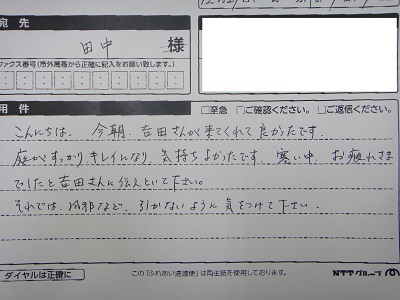 宛先
田中 様
ファクス番号(市外局番から正確に記入をお願い致します。)
用件 □至急 □ご確認ください。 □ご返信ください。
こんにちは。 今朝、吉田さんが来てくれて良かったです。
庭がすっかりキレイになり、気持ちよかったです。寒い中、お疲れさま
でしたと吉田さんに伝えといて下さい。
それでは、風邪など、引かないように気をつけて下さい。
ダイヤルは正確に この「ふれあい速達便」は再生紙を使用しております。 NTTグループ